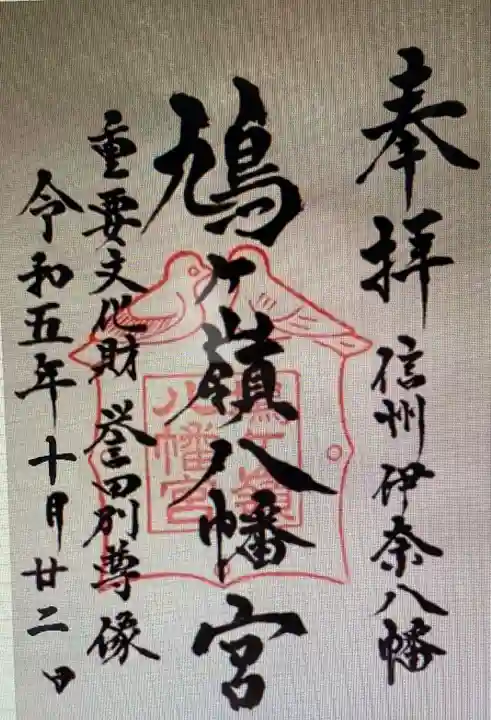 奉拝 信州伊奈八幡
鳩ヶ嶺八幡宮
重要文化財 誉田別尊像
令和五年十月廿二日
鳩ヶ嶺
八幡宮